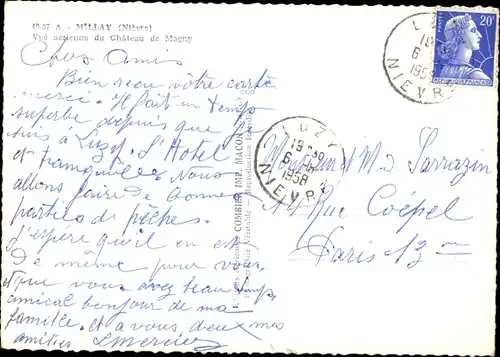 10-67 A - MILLAY (Nièvre)
Vue aérienne du Château de Magny
Chers Amis
Bien reçu votre carte
merci. Il fait un temps
superbe depuis que je
suis à Luzy. L'Hotel
et tranquille. Nous
allons faire de bonnes
parties de pêches.
J'espère qu'il en est
de même pour vous.
et que vous avez beau temps,
amical bonjour de ma
famille. et a vous deux mes
amitiés Lmercier
COMBIER IMP. MACON
Reproduction Interdite
Monsieur et Me Sarrazin
Rue Coepel
Paris 13 me
LUZY
18 30
6
1958
NIEVRE
LUZY
18 30
6
1958
NIEVRE
POSTES
20F
REPUBLIQUE FRANÇAISE